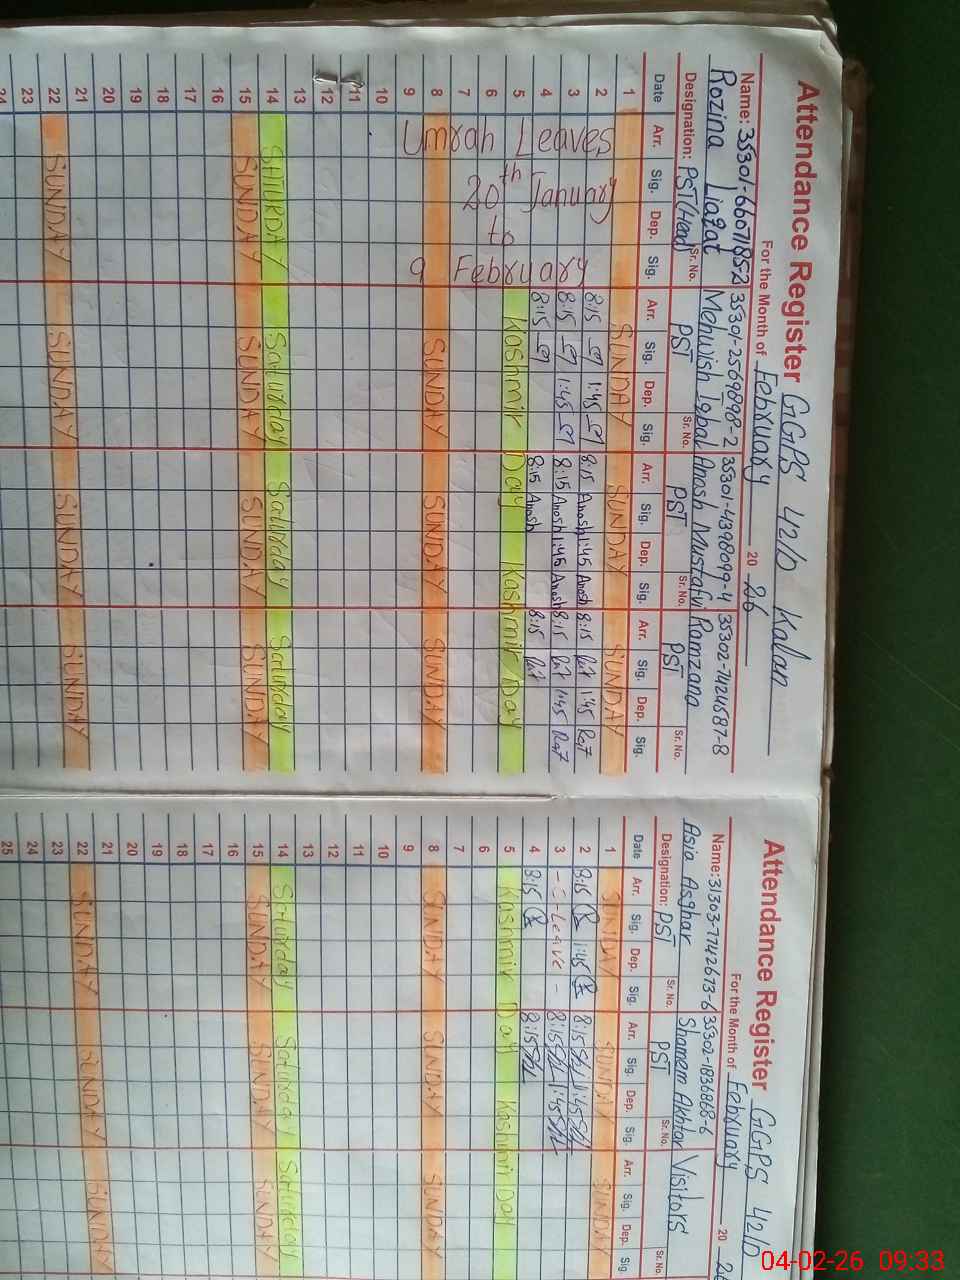 Attendance Register GGPS 42/D Kalan
For the Month of February 20 26
Name: 35301-6607185-2 35301-2569898-2 35301-4398099-4 35302-7424587-8
Rozina Liaqat Mehwish Iqbal Anosh Mustafvi Ramzana
Designation: PST(Head) Sr. No. PST Sr. No. PST Sr. No. PST Sr. No.
Date Arr. Sig. Dep. Sig. Arr. Sig. Dep. Sig. Arr. Sig. Dep. Sig. Arr. Sig. Dep. Sig.
1 SUNDAY SUNDAY SUNDAY
2 8:15 1:45 8:15 Anosh 1:45 Anosh 8:15 1:45
3 8:15 1:45 8:15 Anosh 1:45 Anosh 8:15 1:45
4 8:15 8:15 Anosh 8:15
Umrah Leaves
20th January
to
9 February
5 Kashmir Day Kashmir Day
6
7
8 SUNDAY SUNDAY SUNDAY
9
10
11
12
13
14 SATURDAY Saturday Saturday Saturday
15 SUNDAY SUNDAY SUNDAY SUNDAY
16
17
18
19
20
21
22 SUNDAY SUNDAY SUNDAY SUNDAY
23
24
Attendance Register GGPS 42/D
For the Month of February 20 26
Name: 31303-7742673-6 35302-1836868-6
Asia Asghar Shamem Akhtar Visitors
Designation: PST Sr. No. PST Sr. No. Sr. No.
Date Arr. Sig. Dep. Sig. Arr. Sig. Dep. Sig. Arr. Sig. Dep. Sig.
1 SUNDAY SUNDAY SUNDAY
2 8:15 1:45 8:15 1:45
3 - C-Leave - 8:15 1:45
4 8:15 8:15
5 Kashmir Day Kashmir Day
6
7
8 SUNDAY SUNDAY SUNDAY
9
10
11
12
13
14 Saturday Saturday Saturday
15 SUNDAY SUNDAY SUNDAY
16
17
18
19
20
21
22 SUNDAY SUNDAY SUNDAY
23
24
25
04-02-26 09:33